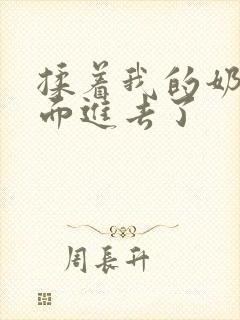 揉着我的奶
而进去了
周長升